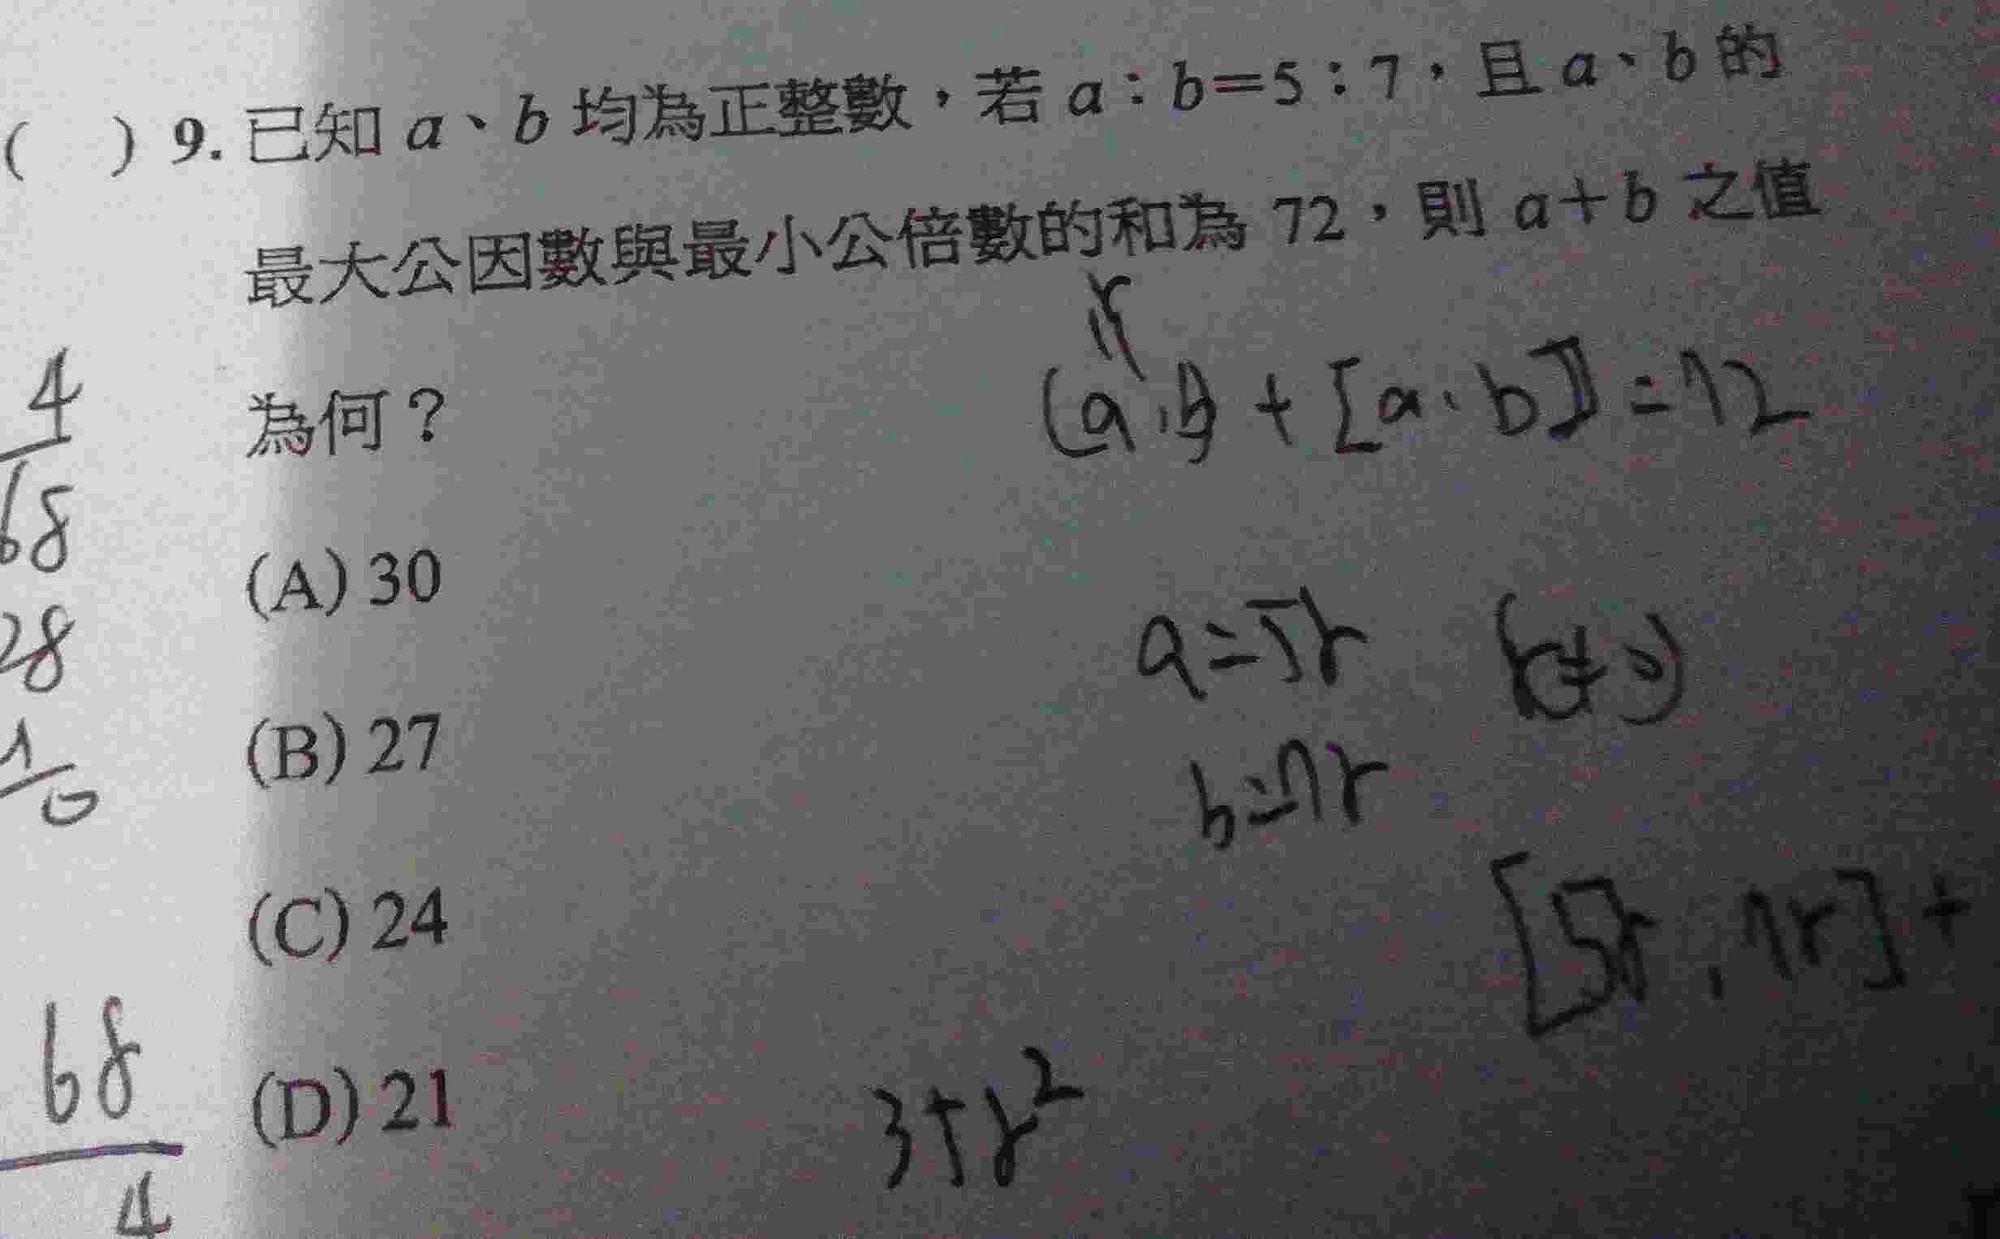 ( ) 9. 已知 a、b 均為正整數，若 a：b=5：7，且 a、b 的
最大公因數與最小公倍數的和為 72，則 a+b 之值
為何？
(A) 30
(B) 27
(C) 24
(D) 21
r
(a,b) + [a,b] = 72
a=5r (r≠0)
b=7r
[5r, 7r] +
35r²
4
68
28
68
4